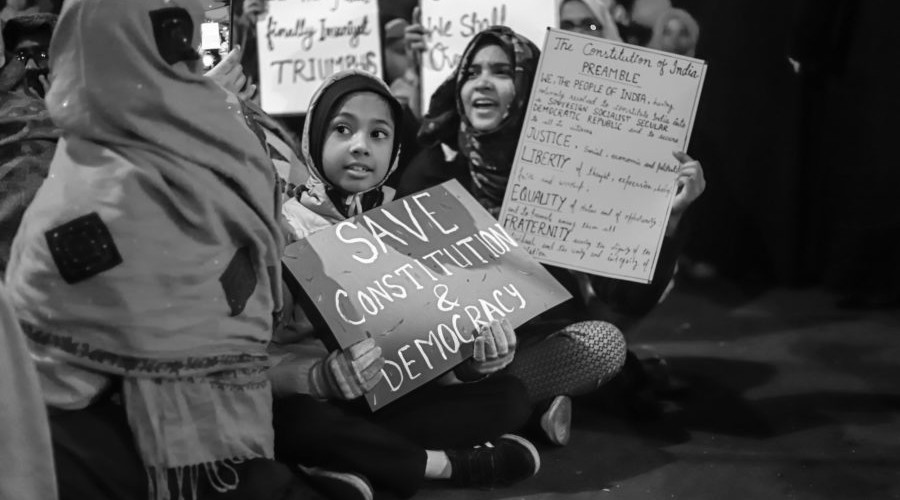 finally Imaniyat
TRIUMPHS
We Shall
The Constitution of India
PREAMBLE
WE, THE PEOPLE OF INDIA, having
solemnly resolved to constitute India into
a SOVEREIGN SOCIALIST SECULAR
DEMOCRATIC REPUBLIC and to secure
to all its citizens
JUSTICE, social, economic and political
LIBERTY of thought, expression, belief
faith and worship;
EQUALITY of status and of opportunity
and to promote among them all
FRATERNITY assuring the dignity of the
and the unity and integrity of
SAVE
CONSTITUTION
&
DEMOCRACY